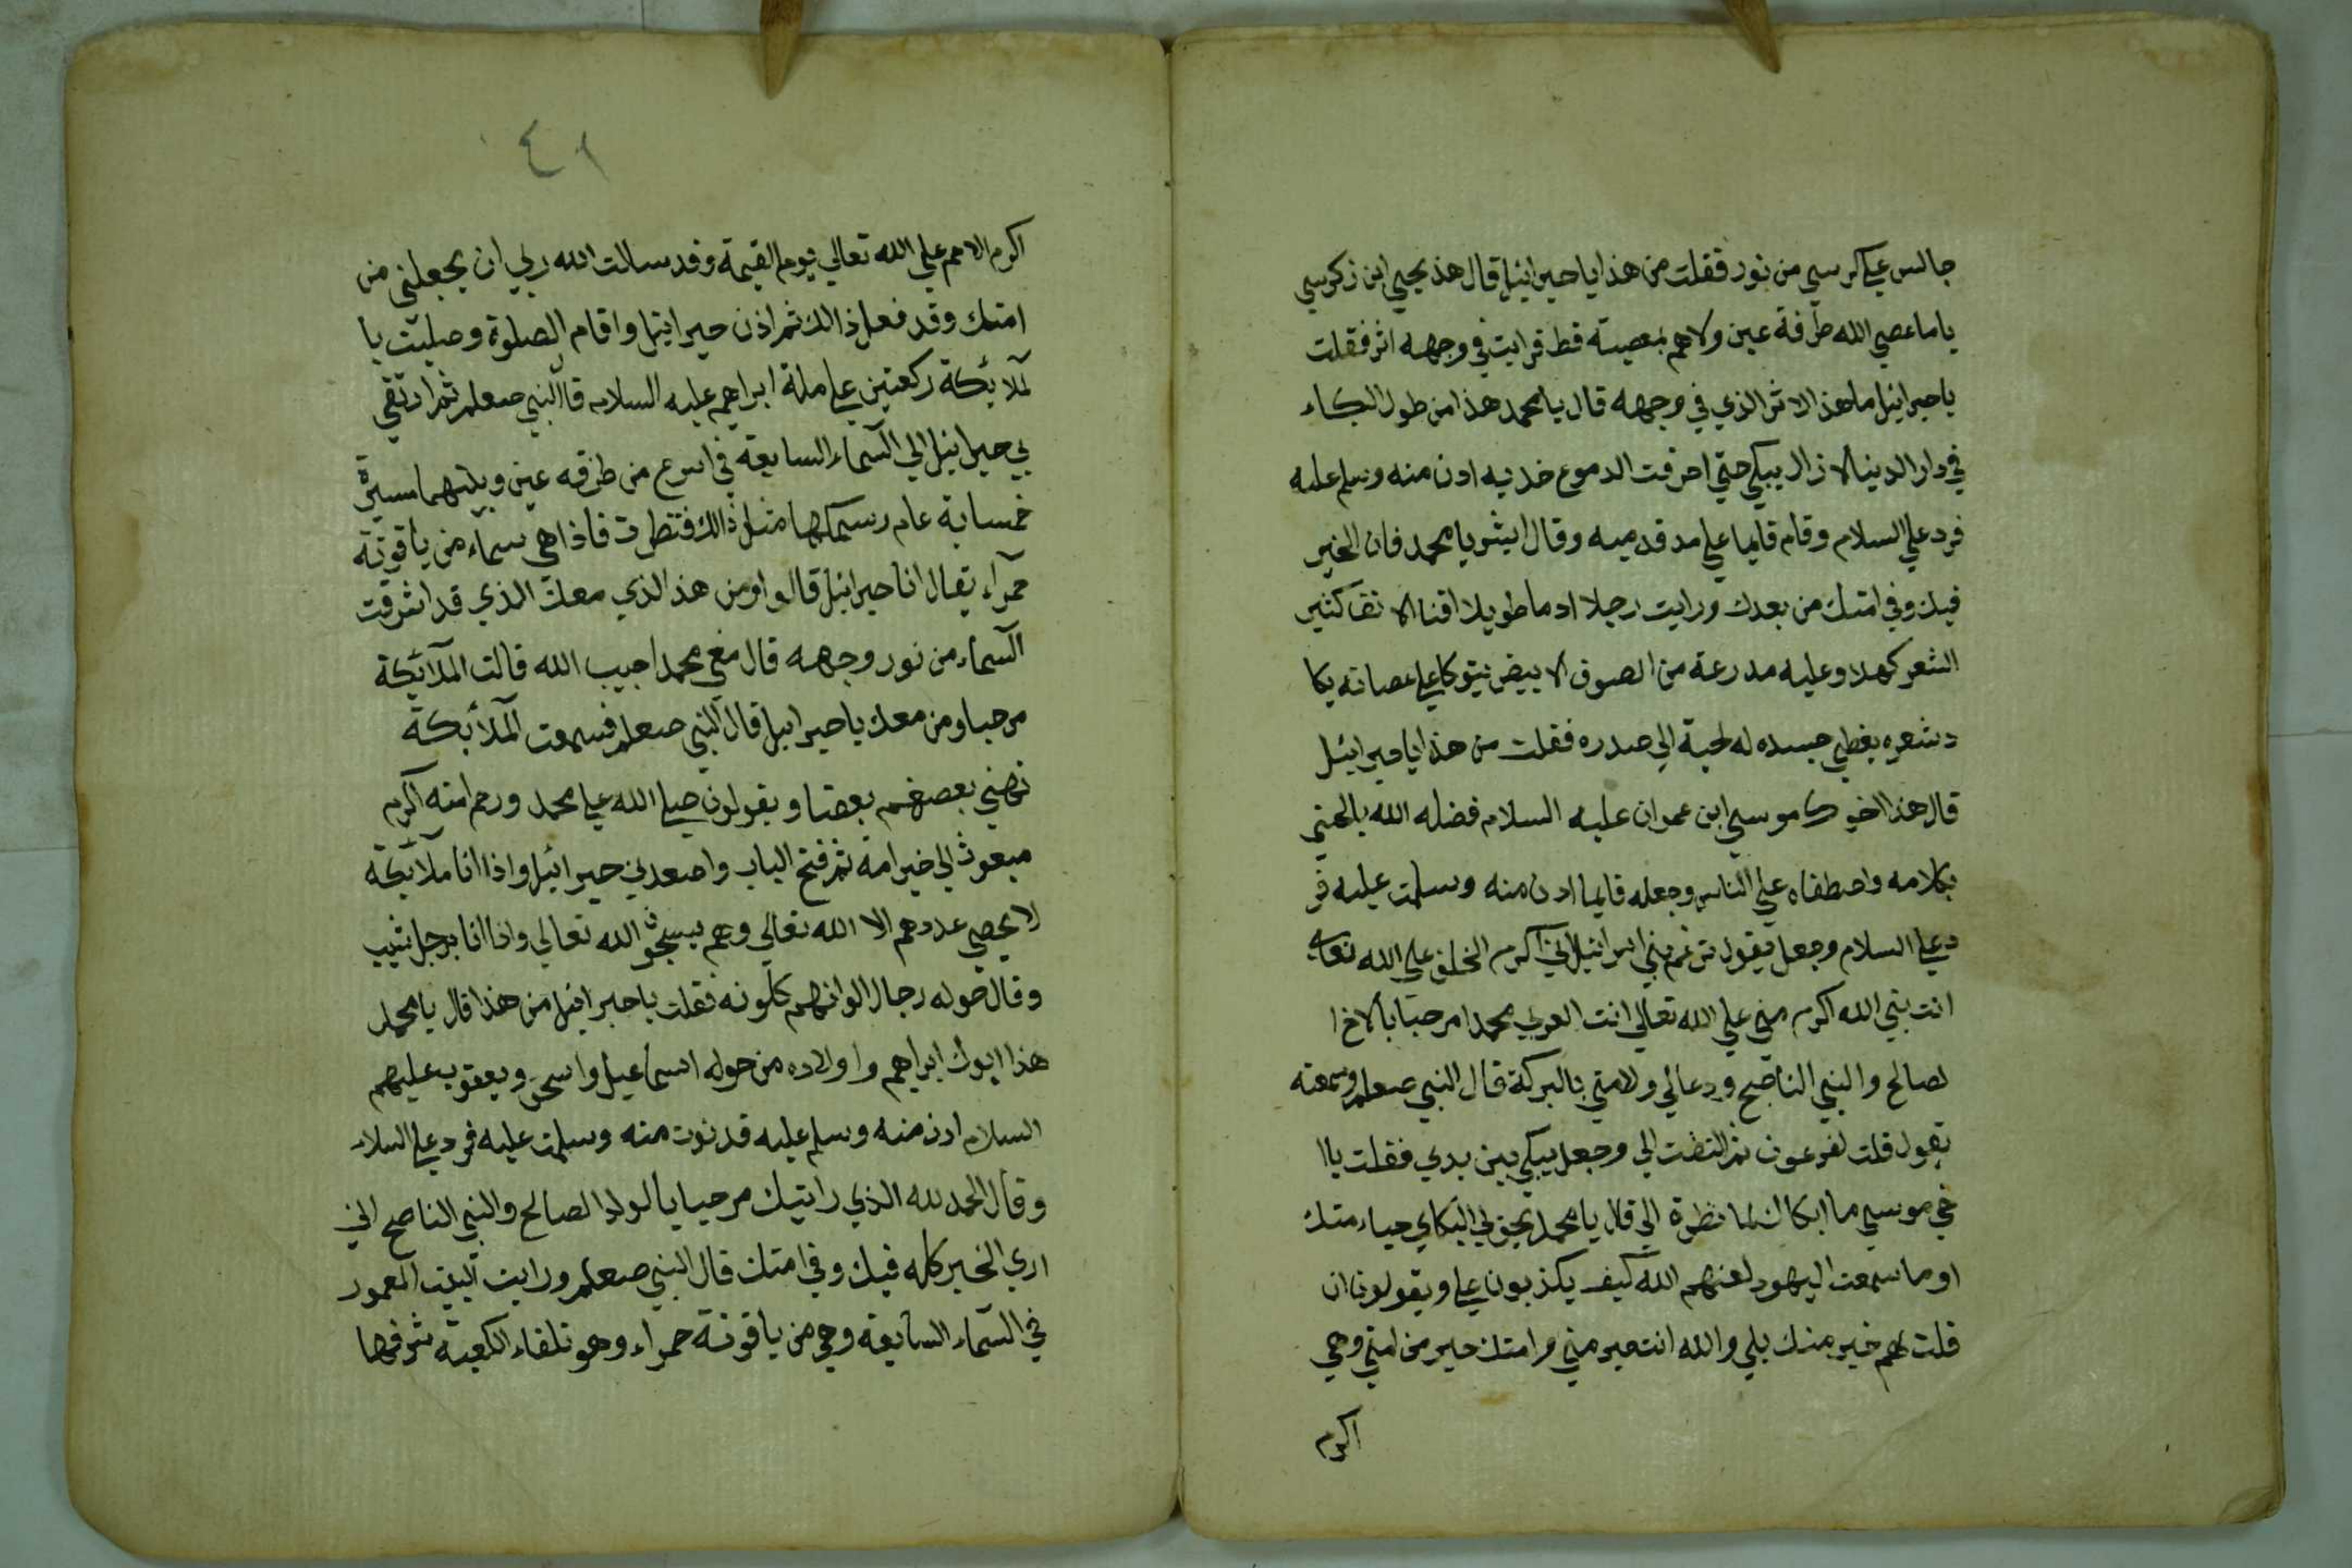 جالس علي كرسي من نور فقلت من هذا يا جبرائيل قال هذ يحيي ابن زكرسي
ياما عصي الله طرفة عين ولا هم بمعصيته قط فرايت في وجهه اثر فقلت
يا جبرائيل ما هذ الاثر الذي في وجهه قال يا محمد هذا من طول البكاء
في دار الدينا لا زال يبكي حتي احرقت الدموع خديه ادن منه وسلم عليه
فرد علي السلام وقام قايما علي مد قدميه وقال ابشر يا محمد فان الخير
فيك وفي امتك من بعدك ورايت رجلا ادما طويلا اقنا الا نف كثير
الشعر كهلا وعليه مدرعة من الصوف الابيض يتوكا علي عصاته يكا
د شعره يغطي جسده له لحية الي صدره فقلت من هذا يا جبرائيل
قال هذا اخوك موسي ابن عمران عليه السلام فضله الله
بكلامه واصطفاه علي الناس وجعله قايما ادن منه وسلمت عليه فر
د علي السلام وجعل يقول تزعم بني اسرائيل اني اكرم الخلق علي الله تعالي
انت بني الله اكرم مني علي الله تعالي انت العربي محمدا مرحبا بالاخ ا
لصالح والنبي الناصح ودعا لي ولامتي بالبركة قال النبي صعلم وسمعته
يقول قلت لفرعون ثم التفت الي وجعل يبكي بين يدي فقلت يا ا
خي موسي ما ابكاك لما نظرة الي قال يا محمد يحق لي البكاي حياء متك
او ما سمعت اليهود لعنهم الله كيف يكذبون علي ويقولون ان
قلت لهم خير منك بلي والله انت خير مني وامتك خير من امتي وهي
اكرم
٤١
اكرم الامم علي الله تعالي يوم القيمة وقد سالت الله ربي ان يجعلني من
امتك وقد فعل ذالك ثم اذن جبرائيل واقام الصلوة وصليت با
لملائكة ركعتين علي ملة ابراهيم عليه السلام قال النبي صعلم ثم ارتقي
بي جبرائيل الي السماء السابعة في اسرع من طرفه عين وبينهما مسيرة
خمساية عام وسمكها مثل ذالك فنظرت فاذا هي سماء من ياقوتة
حمراء يقال انا جبرائيل قالوا ومن هذ الذي معك الذي قد اشرقت
السماء من نور وجهه قال معي محمدا حبيب الله قالت الملائكة
مرحبا ومن معك يا جبرايل قال النبي صعلم فسمعت الملائكة
تهني بعضهم بعضا ويقولون صلي الله علي محمد ورحم امته اكرم
مبعوث الي خير امة ثم فتح الباب واصعدني جبرائيل واذا انا ملائكة
لا يحصي عددهم الا الله تعالي وهم يسبحون الله تعالي واذا انا برجل شيب
وقال حوله رجال الوانهم كلونه فقلت يا جبرائيل من هذا قال يا محمد
هذا ابوك ابراهيم واولاده من حوله اسماعيل واسحق ويعقوب عليهم
السلام ادن منه وسلم عليه فدنوت منه وسلمت عليه فرد علي السلام
وقال الحمد لله الذي رايتك مرحبا بالولد الصالح والنبي الناصح اني
اري الخير كله فيك وفي امتك قال النبي صعلم ورايت البيت المعمور
في السماء السابعة وهي من ياقوتة حمراء وهو تلقاء الكعبة شرفها